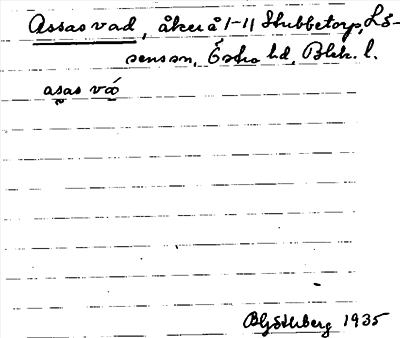 Assas vad, åker å 1-11 Stubbetorp, Lö-
sens sn, Östra hd, Blek. l.
asas vá
B Göthberg 1935